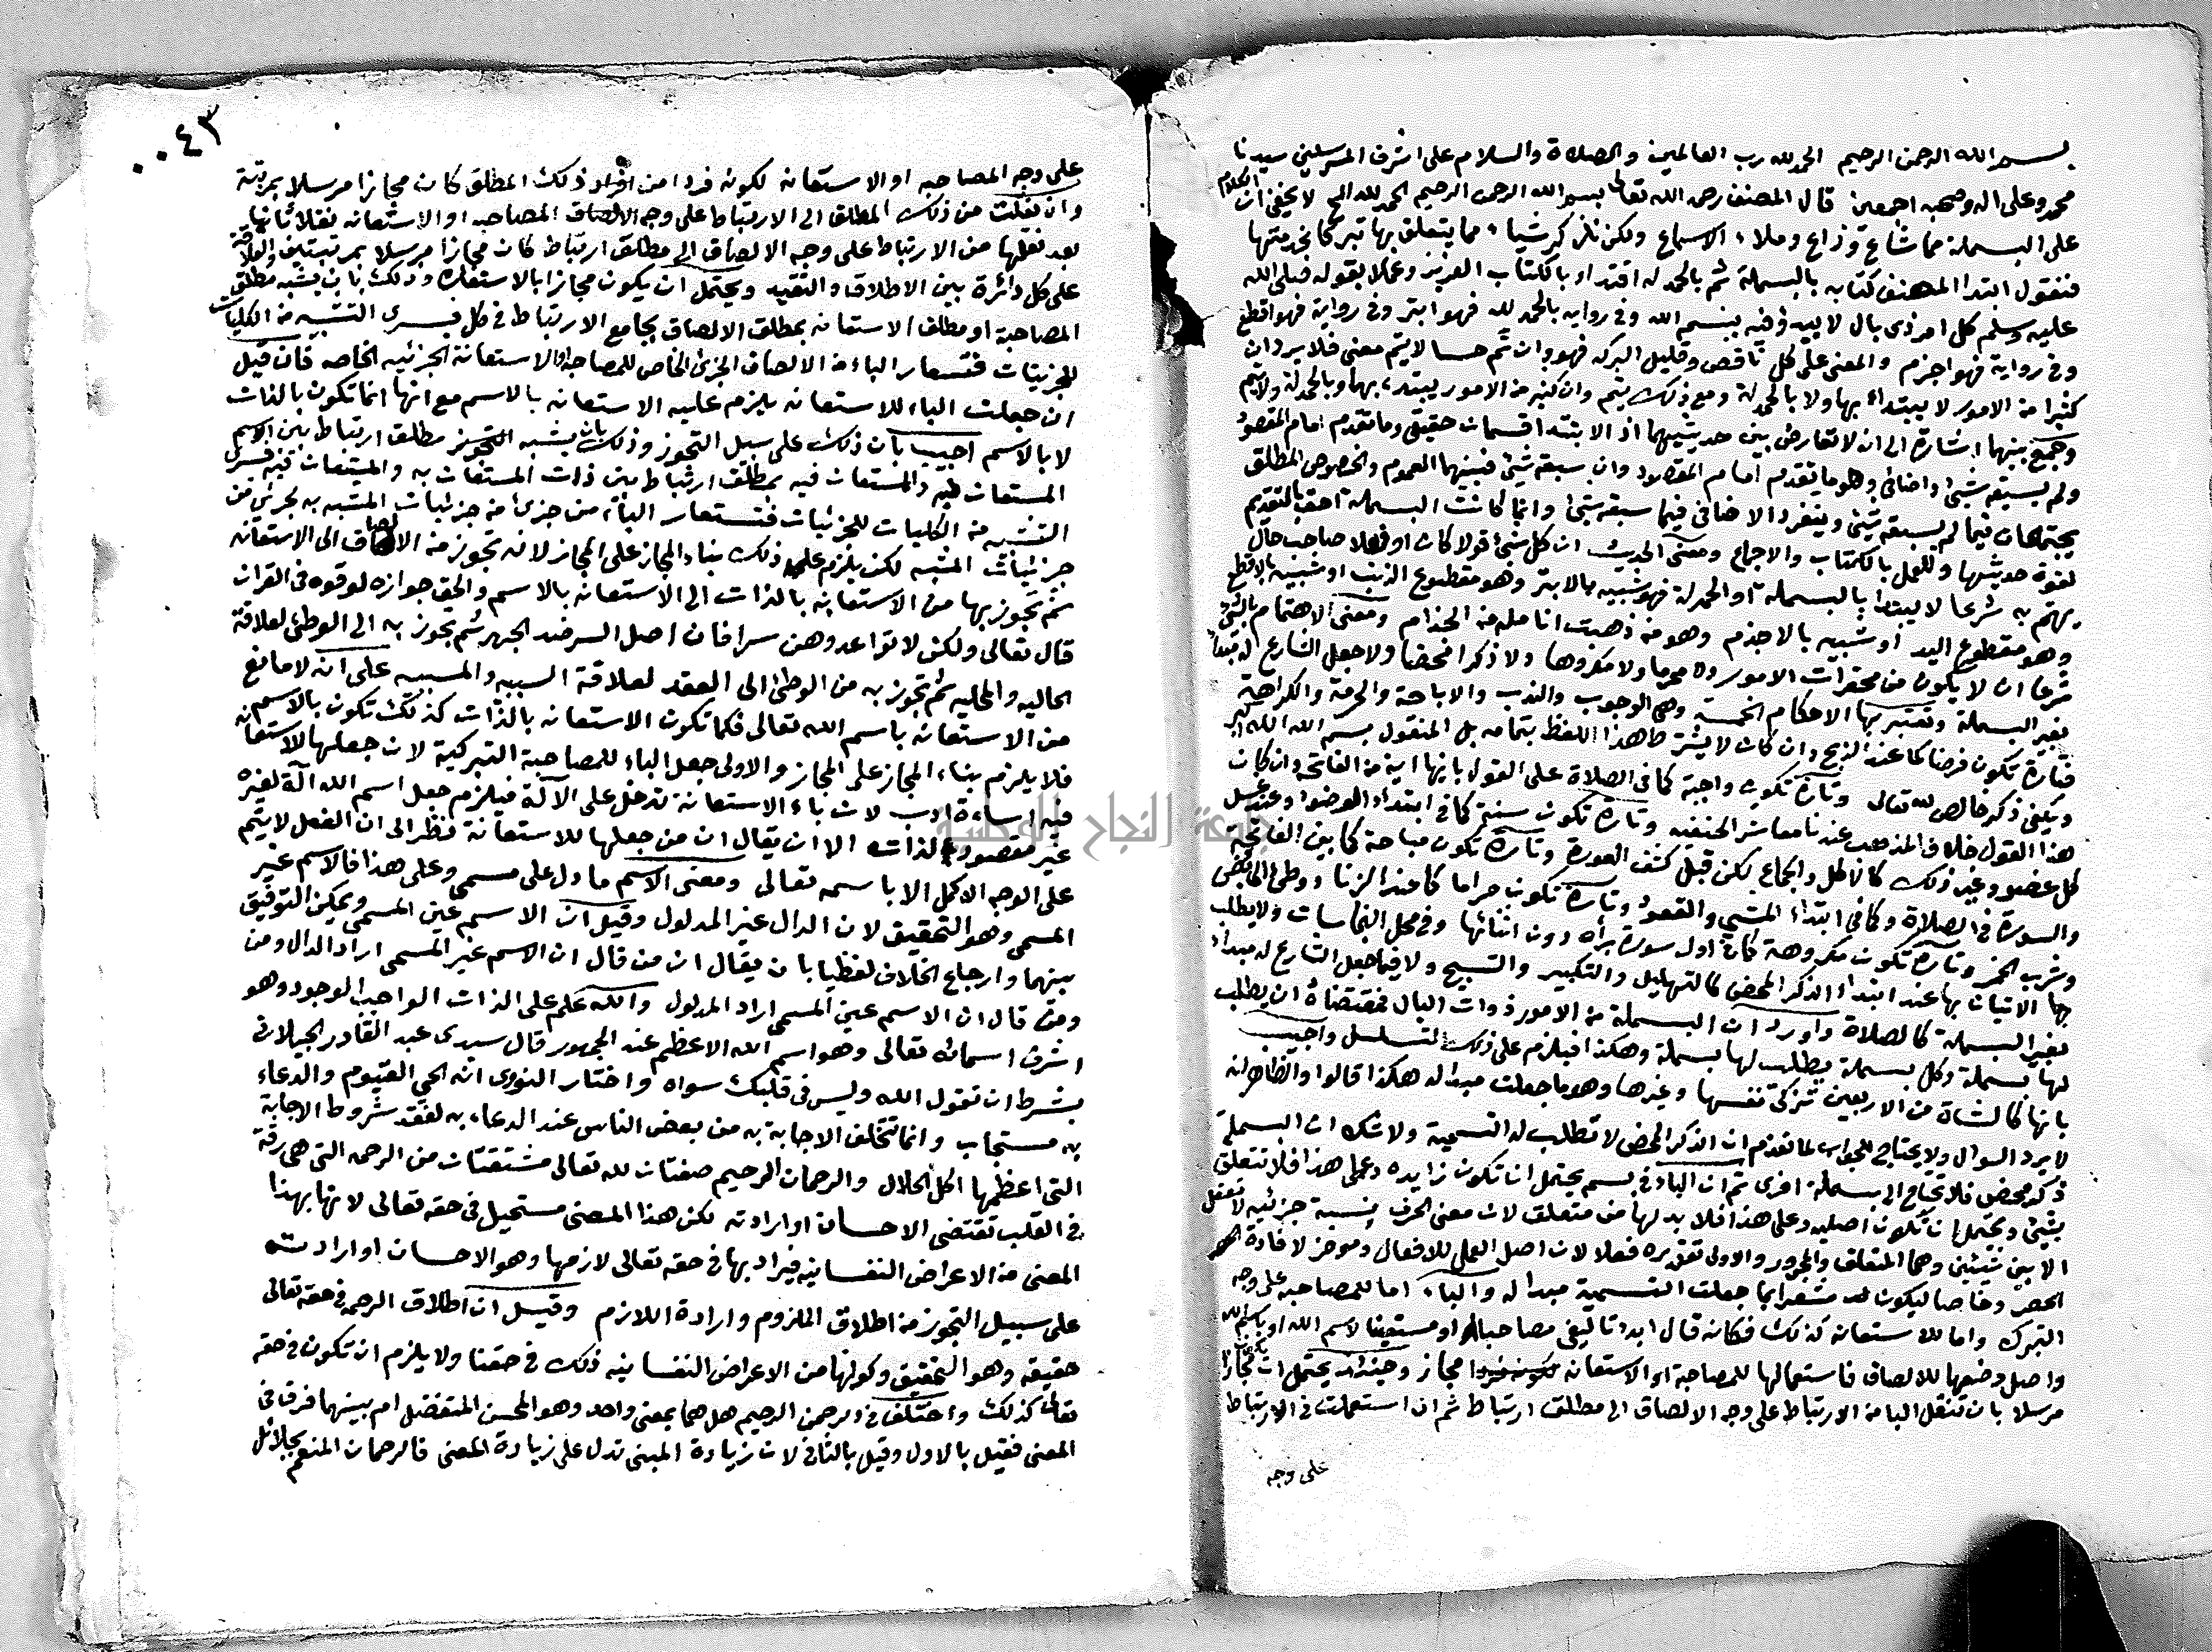 بسم الله الرحمن الرحيم الحمد لله رب العالمين والصلاة والسلام على اشرف المرسلين سيدنا
محمد وعلى اله وصحبه اجمعين قال المصنف رحمه الله تعالى بسم الله الرحمن الرحيم الحمد لله الخ لا يخفى ان الكلام
على البسملة مما شاع وذاع وملاء الاسماع ولكن نذكر شيأ مما يتعلق بها تبركا بخدمتها
فنقول ابتدا المصنف كتابه بالبسملة ثم بالحمدلة اقتداء بالكتاب العزيز وعملا بقوله صلى الله
عليه وسلم كل امر ذى بال لا يبدؤ فيه ببسم الله وفى رواية بالحمد لله فهو ابتر وفى رواية فهو اقطع
وفى رواية فهو اجذم والمعنى على كل ناقص وقليل البركة فهو وان تم حسا لا يتم معنى فلا يرد ان
كثيرا من الامور لا يبتداء بها ولا بالحمدلة ومع ذلك يتم وان كثير من الامور يبتدء بها وبالحمدلة ولا يتم
وجمع بينهما اشارة الى ان لا تعارض بين حديثيهما اذ الابتداء قسمان حقيقى وما تقدم امام المقصود
ولم يسبقه شيئ واضافى وهو ما تقدم امام المقصود وان سبقه شيئ فبينهما العموم والخصوص المطلق
يجتمعان فيما لم يسبقه شيئ وينفرد الاضافى فيما سبقه شيئ وانما كانت البسملة احق بالتقديم
لقوة حديثها وللعمل بالكتاب والاجماع ومعنى الحديث ان كل شيئ قولا كان او فعلا صاحب حال
يهتم به شرعا لا يبتدا بالبسملة او الحمدلة فهو شبيه بالابتر وهو مقطوع الذنب او شبيه بالاقطع
وهو مقطوع اليد او شبيه بالاجذم وهو من ذهبت انامله من الجذام ومعنى الاهتمام بالشئ
شرعا ان لا يكون من محقرات الامور ولا محرما ولا مكروها ولا ذكرا محضا ولا جعل الشارع له مبتدأ
بغير البسملة وتعتبر بها الاحكام الخمسة وهى الوجوب والندب والاباحة والحرمة والكراهة
فتارة تكون فرضا كما عند الذبح وان كان لا يشترط هذا اللفظ بتمامه بل المنقول بسم الله الله اكبر
ويكفى ذكر خالص لله تعالى وتارة تكون واجبة كما فى الصلاة على القول بانها اية من الفاتحة وان كان
هذا القول خلاف المذهب عندنا معاشر الحنفيه وتارة تكون سنة كما فى ابتداء الوضوء وعند غسل
كل عضو وغير ذلك كالاكل والجماع لكن قبل كشف العورة وتارة تكون مباحة كما بين الفاتحة
والسورة فى الصلاة وكما فى ابتداء المشي والقعود وتارة تكون حراما كما عند الزنا ووطئ الحائض
وشرب الخمر وتارة تكون مكروهة كما فى اول سورة براه دون اثنائها وفى محل النجاسات ولا يطلب
بها الاتيان بها عند ابتداء الذكر المحض كالتهليل والتكبير والتسبيح ولا فيما جعل الشارع له مبدا
بغير البسملة كالصلاة واورد ان البسملة من الامور ذوات البال فمقتضاه ان يطلب
لها بسملة وكل بسملة يطلب لها بسملة وهكذا فيلزم على ذلك التسلسل واجيب
بانها كالشاة من الاربعين تزكى نفسها وغيرها وهو ما جعلت مبدا له هكذا قالوا والظاهر انه
لا يرد السوال ولا يحتاج للجواب لما تقدم ان الذكر المحض لا تطلب له التسمية ولا شك ان البسملة
ذكر محض فلا تحتاج الى بسملة اخرى ثم ان الباء فى بسم يحتمل ان تكون زايده وعلى هذا فلا تتعلق
بشيئ ويحتمل ان تكون اصليه وعلى هذا فلا بد لها من متعلق لان معنى الحرف نسبة جزئيه لا تعقل
الا بين شيئين وهما المتعلق والمجرور والاولى تقديره فعلا لان اصل العمل للافعال ومؤخر لافادة
الحصر وخاصا ليكون مشعرا بما جعلت التسمية مبدا له والباء اما للمصاحبة على وجه
التبرك واما للاستعانه كذلك فكانه قال ابدء تاليفى مصاحبا او مستعينا لاسم الله او باسم الله
واصل وضعها للالصاق فاستعمالها للمصاحبة او الاستعانه مجاز وحينئذ يحتمل ان تكون مجازا
مرسلا بان تنقل البا من الارتباط على وجه الالصاق الى مطلق ارتباط ثم ان استعملت فى الارتباط
على وجه
٠٠٤٣
على وجه المصاحبه او الاستعانه لكونه فردا من افراد ذلك المطلق كان مجازا مرسلا بمرتبة
وان نقلت من ذلك المطلق الى الارتباط على وجه الالصاق المصاحبه او الاستعانه نقلا ثانيا
بعد نقلها من الارتباط على وجه الالصاق الى مطلق ارتباط كان مجازا مرسلا بمرتبتين والعلاقة
على كل دائرة بين الاطلاق والتقييد ويحتمل ان يكون مجازا بالاستعاره وذلك بان يشبه مطلق
المصاحبة او مطلق الاستعانه بمطلق الالصاق بجامع الارتباط فى كل فسرى التشبيه من الكليات
للجزئيات فتستعار الباء من الالصاق الجزئ الخاص للمصاحبة او الاستعانة الجزئيه الخاصه فان قيل
ان جعلت الباء للاستعانه يلزم عليه الاستعانه بالاسم مع انها انما تكون بالذات
لا بالاسم اجيب بان ذلك على سبيل التجوز وذلك بان يشبه مطلق ارتباط بين الاسم
المستعان به والمستعان فيه بمطلق ارتباط بين ذات المستعان به والمستعان فيه فسرى
التشبيه من الكليات للجزئيات فتستعار الباء من جزئ من جزئيات المشبه به لجزئ من
جزئيات المشبه لكن يلزم على ذلك بناء المجاز على المجاز لانه تجوز من الالصاق الى الاستعانه
ثم تجوز بها من الاستعانه بالذات الى الاستعانه بالاسم والحق جوازه لوقوعه فى القران
قال تعالى ولكن لا تواعدوهن سرا فان اصل السر ضد الجهر ثم تجوز به الى الوطئ لعلاقة
الحاليه والمحليه ثم تجوز به من الوطئ الى العقد لعلاقة السببيه والمسببيه على ان لا مانع
من الاستعانه باسم الله تعالى فكما تكون الاستعانه بالذات كذلك تكون بالاسم
فلا يلزم بناء المجاز على المجاز والاولى جعل الباء للمصاحبة التبركية لان جعلها للاستعانه
فيه اساءة ادب لان باء الاستعانة تدخل على الآلة فيلزم جعل اسم الله آلة لغيره
غير مقصود لذاته الا ان يقال ان من جعلها للاستعانة نظر الى ان الفعل لا يتم
على الوجه الاكمل الا باسمه تعالى ومعنى الاسم ما دل على مسمى وعلى هذا فالاسم غير
المسمى وهو التحقيق لان الدال غير المدلول وقيل ان الاسم عين المسمى ويمكن التوفيق
بينهما وارجاع الخلاف لفظيا بان يقال ان من قال ان الاسم غير المسمى اراد الدال ومن
ومن قال ان الاسم عين المسمى اراد المدلول والله علم على الذات الواجب الوجود وهو
اشرف اسمائه تعالى وهو اسم الله الاعظم عند الجمهور قال سيدى عبد القادر الجيلانى
بشرط ان تقول الله وليس فى قلبك سواه واختار النووى انه الحي القيوم والدعاء
به مستجاب وانما تتخلف الاجابة به من بعض الناس عند الدعاء به لفقد شروط الاجابة
التى اعظمها اكل الحلال والرحمان الرحيم صفتان لله تعالى مشتقتان من الرحمه التى هى رقة
فى القلب تقتضى الاحسان او ارادته لكن هذا المعنى مستحيل فى حقه تعالى لانها بهذا
المعنى من الاعراض النفسانيه فيراد بها فى حقه تعالى لازمها وهو الاحسان او ارادته
على سبيل التجوز من اطلاق الملزوم وارادة اللازم وقيل ان اطلاق الرحمه فى حقه تعالى
حقيقه وهو التحقيق وكونها من الاعراض النفسانيه ذلك فى حقنا ولا يلزم ان تكون فى حقه
تعالى كذلك واختلف فى الرحمن الرحيم هل هما بمعنى واحد وهو المحسن المتفضل ام بينهما فرق فى
المعنى فقيل بالاول وقيل بالثانى لان زيادة المبنى تدل على زيادة المعنى فالرحمان المنعم بجلائل
جامعة النجاح الوطنية